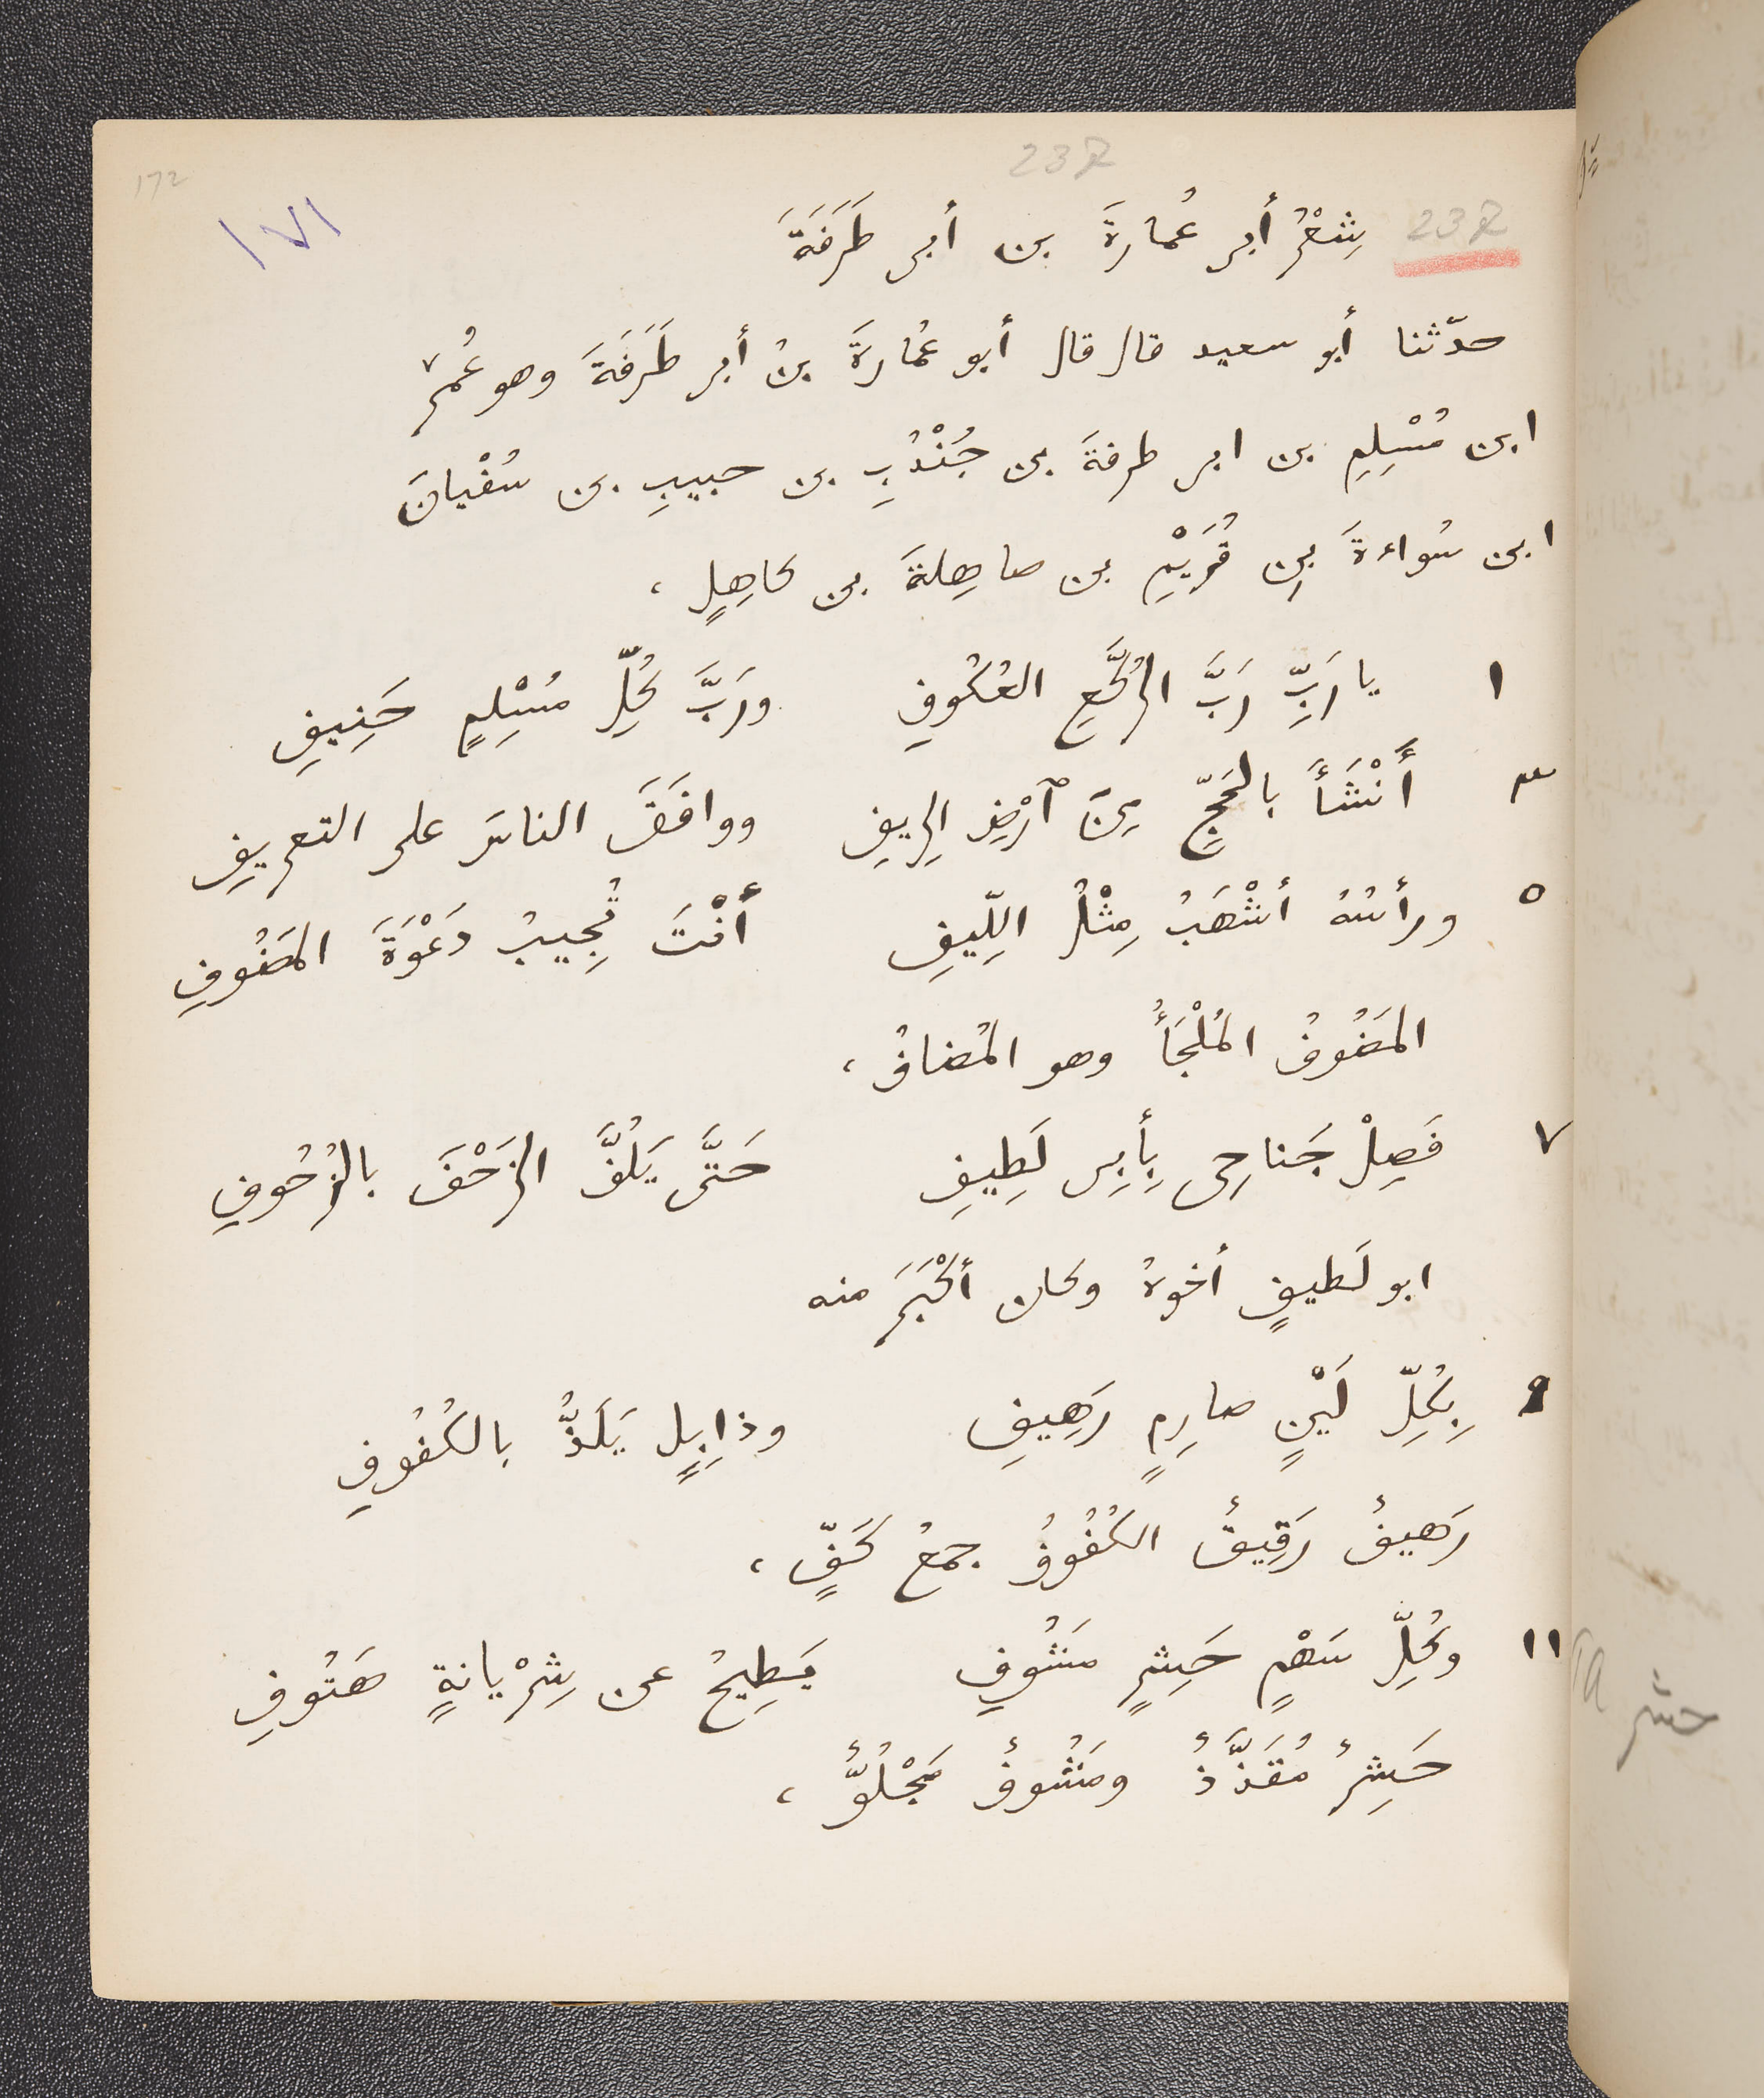 172
١٧١
232
232 شِعْرُ أبى عُمارةَ بن أبى طَرَفَةَ
حدّثنا أبو سعيد قال قال أبو عُمارةَ بنُ أبى طَرَفَةَ وهو عُمر
ابن مُسْلِمِ بن ابى طرفةَ بن جُنْدُبِ بن حبيبِ بن سُفْيانَ
ابن سُواءةَ بنِ قُرَيْمِ بن صاهِلةَ بن كاهِلٍ ،
١ يا رَبِّ رَبَّ الرُّكَّعِ العُكُوفِ ورَبَّ كُلِّ مُسْلِمٍ حَنِيفِ
٣ أَنْشَأَ بالحَجِّ مِنَ ٱرْضِ الرِيفِ ووافَقَ الناسَ على التعريفِ
٥ ورأسُهُ أشْهَبُ مِثْلُ اللِّيفِ أنْتَ تُجِيبُ دَعْوَةَ المَضُوفِ
المَضُوفُ المُلْجَأُ وهو المُضافُ ،
٧ فَصِلْ جَناحِى بِأَبِى لَطِيفِ حَتَّى يَلُفَّ الزَحْفَ بالزُحُوفِ
ابو لَطيفٍ أخوهُ وكان أكْبَرَ منه
٩ بِكُلِّ لَيْنٍ صارِمٍ رَهِيفِ وذابِلٍ يَلَذُّ بالكُفُوفِ
رَهيفٌ رَقِيقٌ الكُفُوفُ جمعُ كَفٍّ ،
١١ وكُلِّ سَهْمٍ حَشِرٍ مَشُوفِ يَطِيحُ عن شِرْيانةٍ هَتُوفِ
حَشِرٌ مُقَذَّذٌ ومَشُوفٌ مَجْلُوٌّ ،
حشر